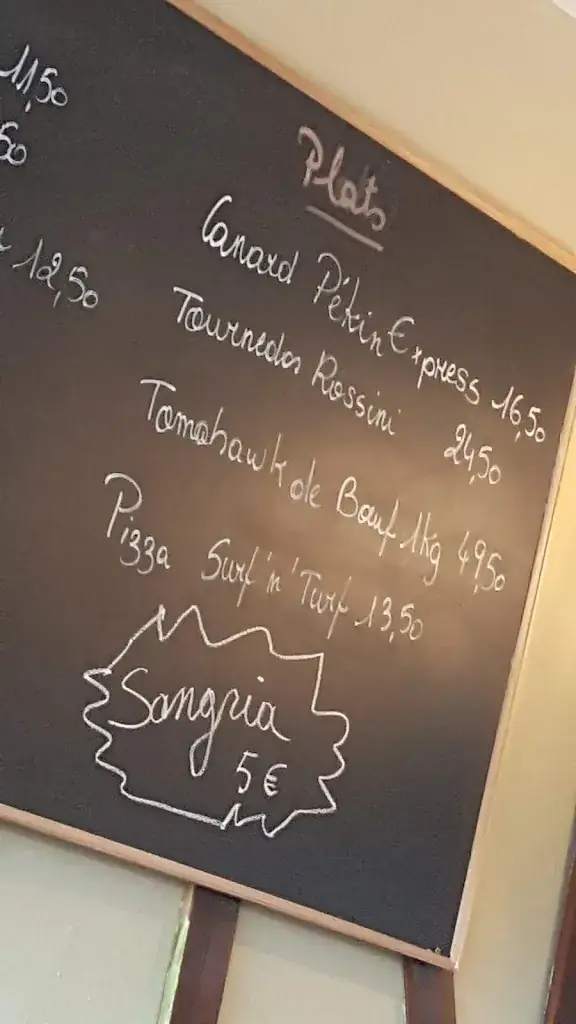 11,50
50
12,50
Plats
Canard Pékin Express 16,50
Tournedos Rossini 24,50
Tomahawk de Bœuf 1kg 49,50
Pizza Surf 'n' Turf 13,50
Sangria
5€